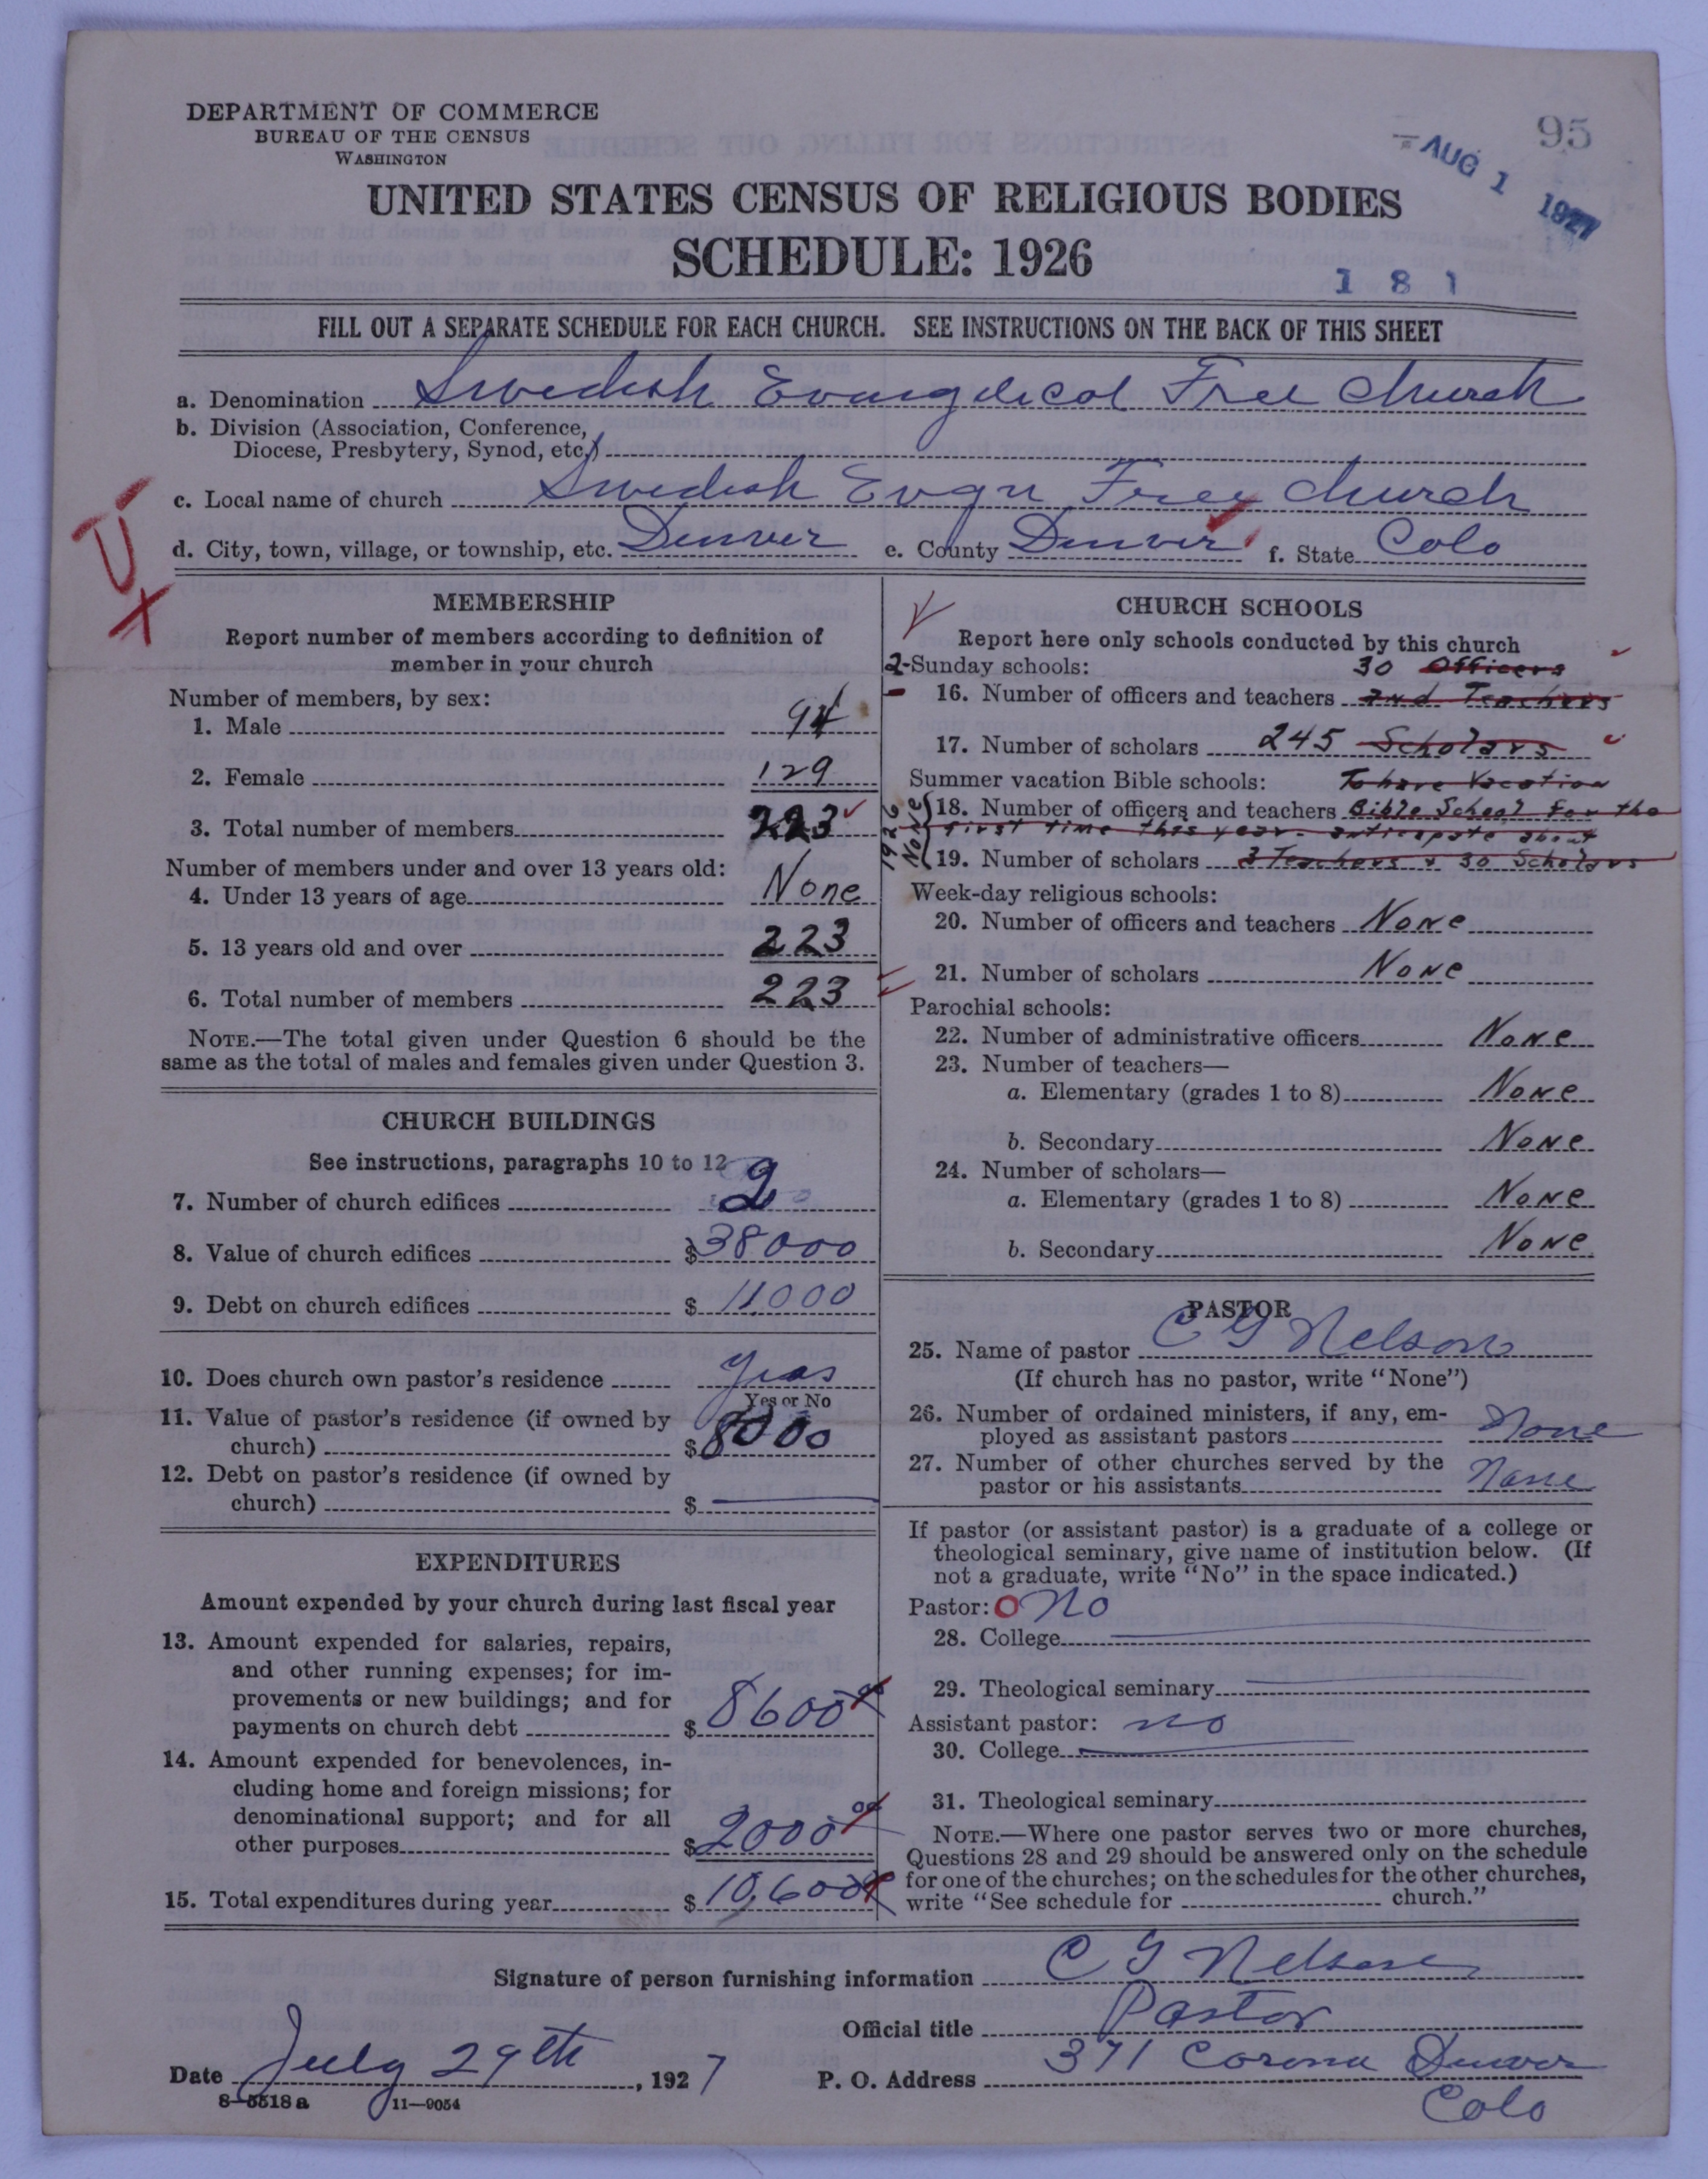 DEPARTMENT OF COMMERCE
BUREAU OF THE CENSUS
WASHINGTON
95
AUG 1 1927
UNITED STATES CENSUS OF RELIGIOUS BODIES
SCHEDULE: 1926
181
FILL OUT A SEPARATE SCHEDULE FOR EACH CHURCH. SEE INSTRUCTIONS ON THE BACK OF THIS SHEET
a. Denomination Swedish Evangelical Free Church
b. Division (Association, Conference,
Diocese, Presbytery, Synod, etc.)
c. Local name of church Swedish Evgn Free Church
d. City, town, village, or township, etc. Denver e. County Denver f. State Colo
MEMBERSHIP
Report number of members according to definition of
member in your church
Number of members, by sex:
1. Male 94
2. Female 129
3. Total number of members 223
Number of members under and over 13 years old:
4. Under 13 years of age None
5. 13 years old and over 223
6. Total number of members 223
NOTE.—The total given under Question 6 should be the
same as the total of males and females given under Question 3.
CHURCH BUILDINGS
See instructions, paragraphs 10 to 12
7. Number of church edifices 2
8. Value of church edifices $38000
9. Debt on church edifices $ 11000
10. Does church own pastor's residence Yeas
Yes or No
11. Value of pastor's residence (if owned by
church) $8000
12. Debt on pastor's residence (if owned by
church) $
EXPENDITURES
Amount expended by your church during last fiscal year
13. Amount expended for salaries, repairs,
and other running expenses; for im-
provements or new buildings; and for
payments on church debt $8600 00
14. Amount expended for benevolences, in-
cluding home and foreign missions; for
denominational support; and for all
other purposes $2000 00
15. Total expenditures during year $10,600
U
X
CHURCH SCHOOLS
Report here only schools conducted by this church
2-Sunday schools: 30 Officers
16. Number of officers and teachers and Teachers
17. Number of scholars 245 Scholars
Summer vacation Bible schools: To have Vacation
18. Number of officers and teachers Bible School For the
first time this year - anticipate about
19. Number of scholars 3 Teachers & 30 Scholars
1926 None
Week-day religious schools:
20. Number of officers and teachers None
21. Number of scholars None
Parochial schools:
22. Number of administrative officers None
23. Number of teachers—
a. Elementary (grades 1 to 8) None
b. Secondary None
24. Number of scholars—
a. Elementary (grades 1 to 8) None
b. Secondary None
PASTOR
25. Name of pastor C G Nelson
(If church has no pastor, write "None")
26. Number of ordained ministers, if any, em-
ployed as assistant pastors None
27. Number of other churches served by the
pastor or his assistants None
If pastor (or assistant pastor) is a graduate of a college or
theological seminary, give name of institution below. (If
not a graduate, write "No" in the space indicated.)
Pastor: O No
28. College
29. Theological seminary
Assistant pastor: no
30. College
31. Theological seminary
NOTE.—Where one pastor serves two or more churches,
Questions 28 and 29 should be answered only on the schedule
for one of the churches; on the schedules for the other churches,
write "See schedule for church."
Signature of person furnishing information C G Nelson
Official title Pastor
Date July 29th, 1927 P. O. Address 371 Corona Denver
Colo
8-5518a 11-9054